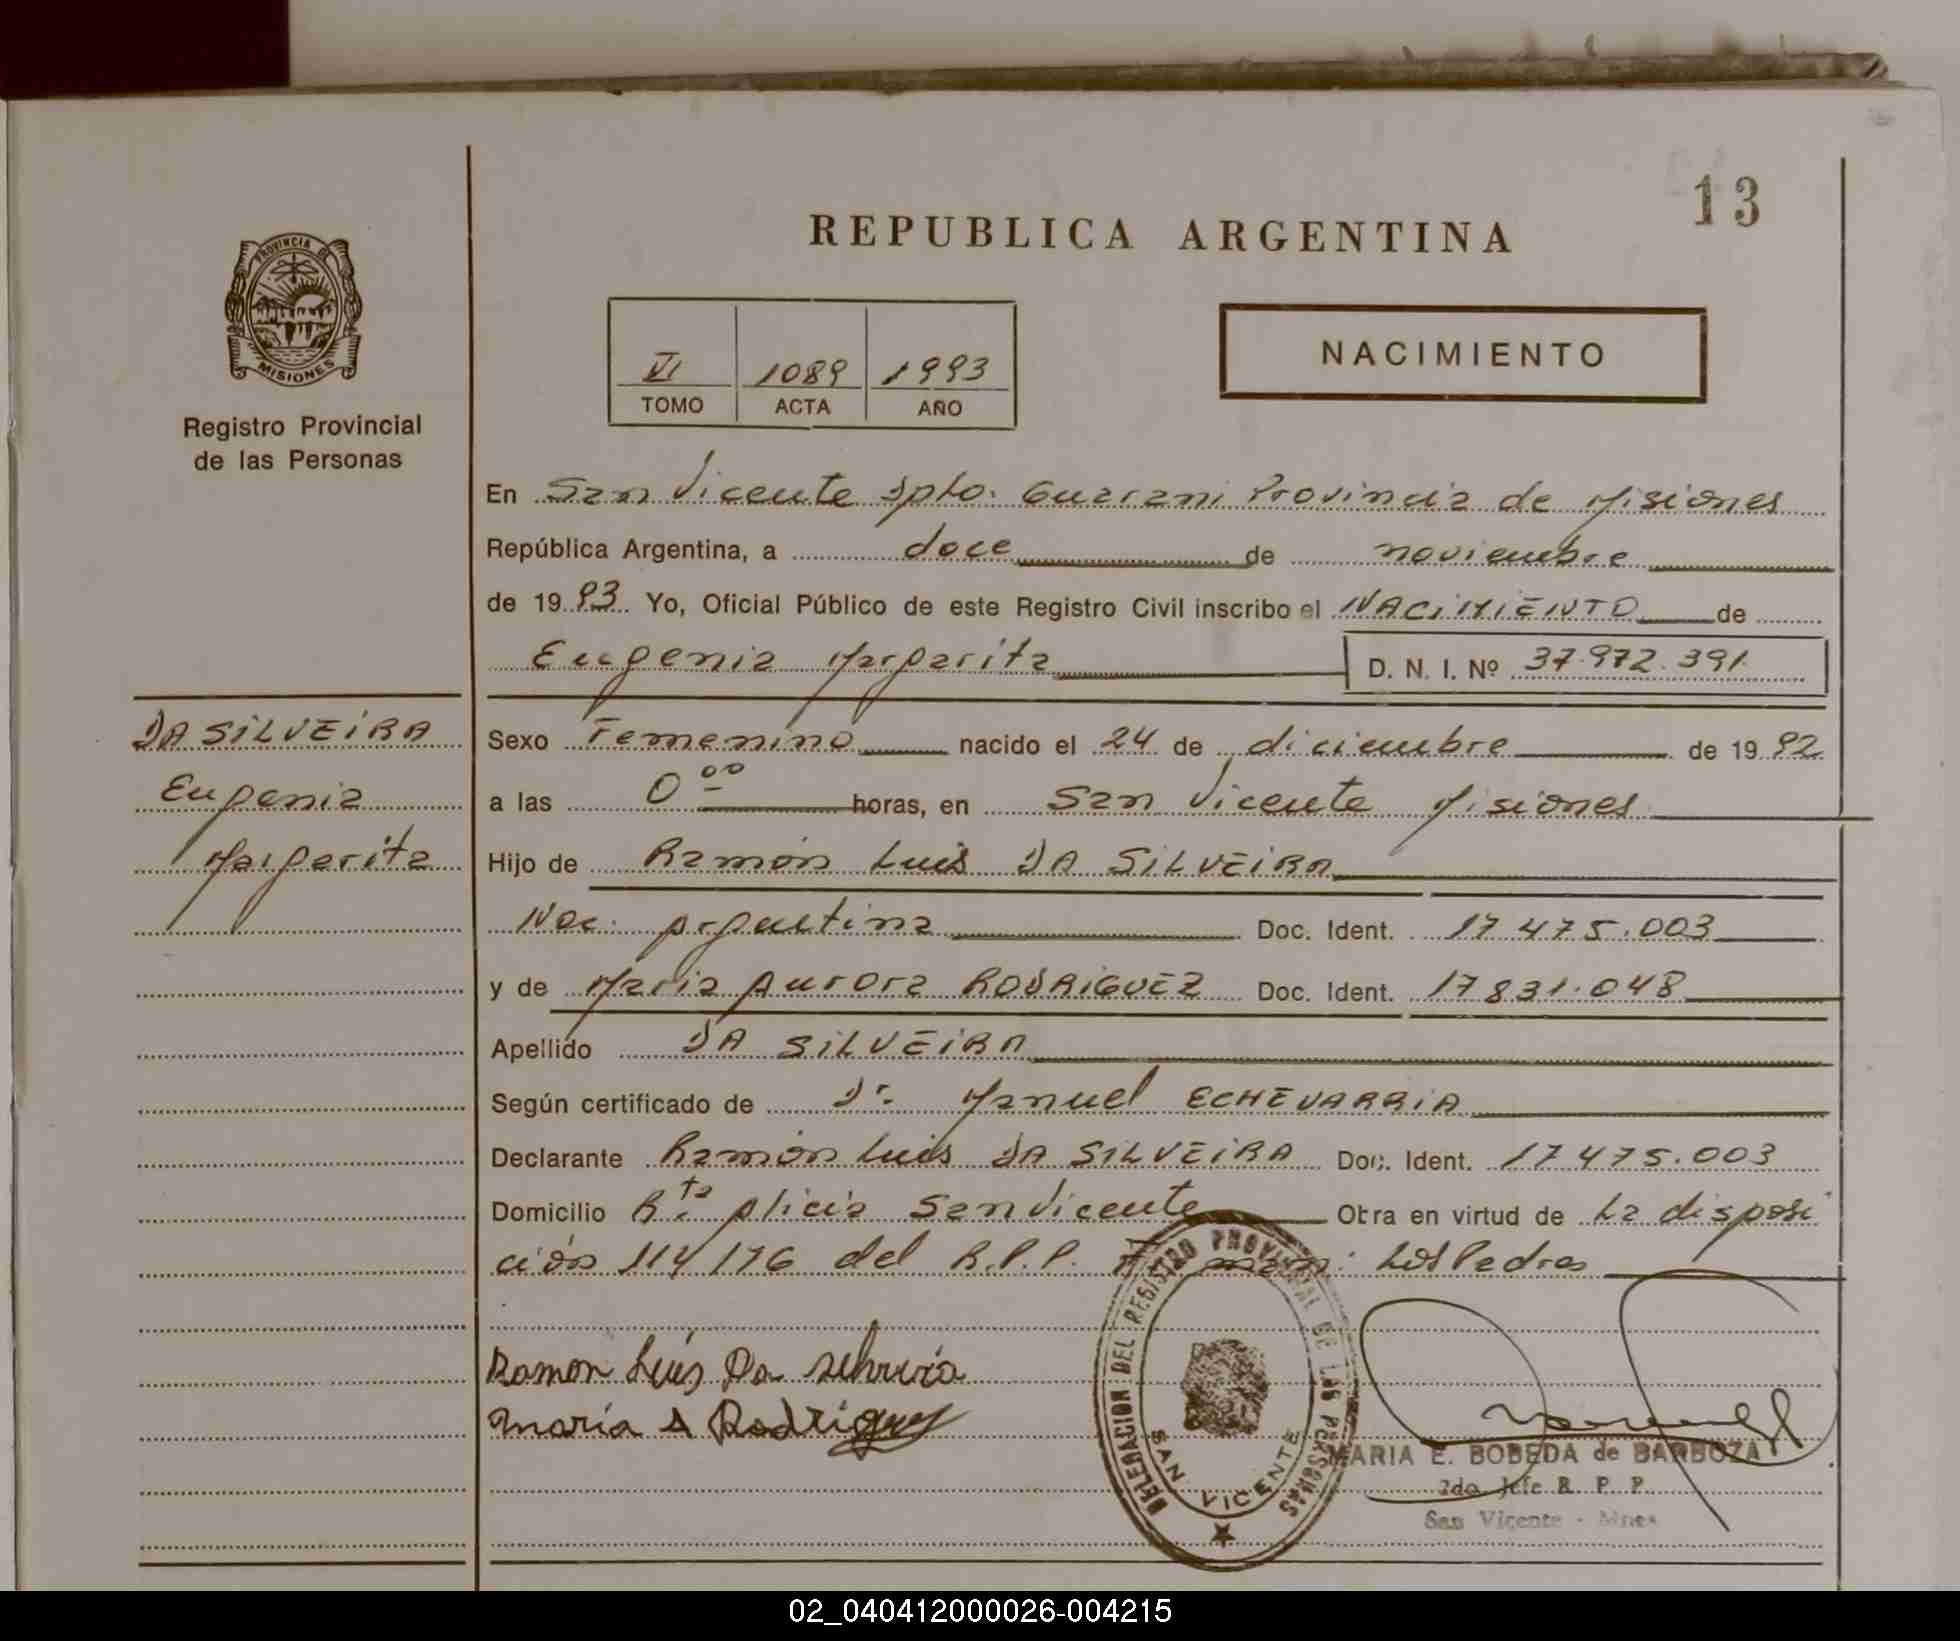 13
REPUBLICA ARGENTINA
PROVINCIA DE
MISIONES
Registro Provincial
de las Personas
VI 1089 1993
TOMO ACTA AÑO
NACIMIENTO
En San Vicente Dpto. Guarani Provincia de Misiones
República Argentina, a doce de noviembre
de 1993 Yo, Oficial Público de este Registro Civil inscribo el NACIMIENTO de
Eugenia Margarita D. N. I. Nº 37.972.391
DA SILVEIRA
Eugenia
Margarita
Sexo Femenino nacido el 24 de diciembre de 1992
a las 0 00 horas, en San Vicente Misiones
Hijo de Ramón Luis DA SILVEIRA
Nac. Argentina Doc. Ident. 17.475.003
y de Maria Aurora RODRIGUEZ Doc. Ident. 17.831.048
Apellido DA SILVEIRA
Según certificado de Dr. Manuel ECHEVARRIA
Declarante Ramón Luis DA SILVEIRA Doc. Ident. 17.475.003
Domicilio Rta. Alicia San Vicente Obra en virtud de La disposi
ción 114/176 del R.P.P. Los Padres
Ramon Luis Da Silveira
Maria A Rodriguez
DELEGACION DEL REGISTRO PROVINCIAL DE LAS PERSONAS
SAN VICENTE
MARIA E. BOBEDA de BARBOZA
2do Jefe R. P. P.
San Vicente - Mnes
02_040412000026-004215